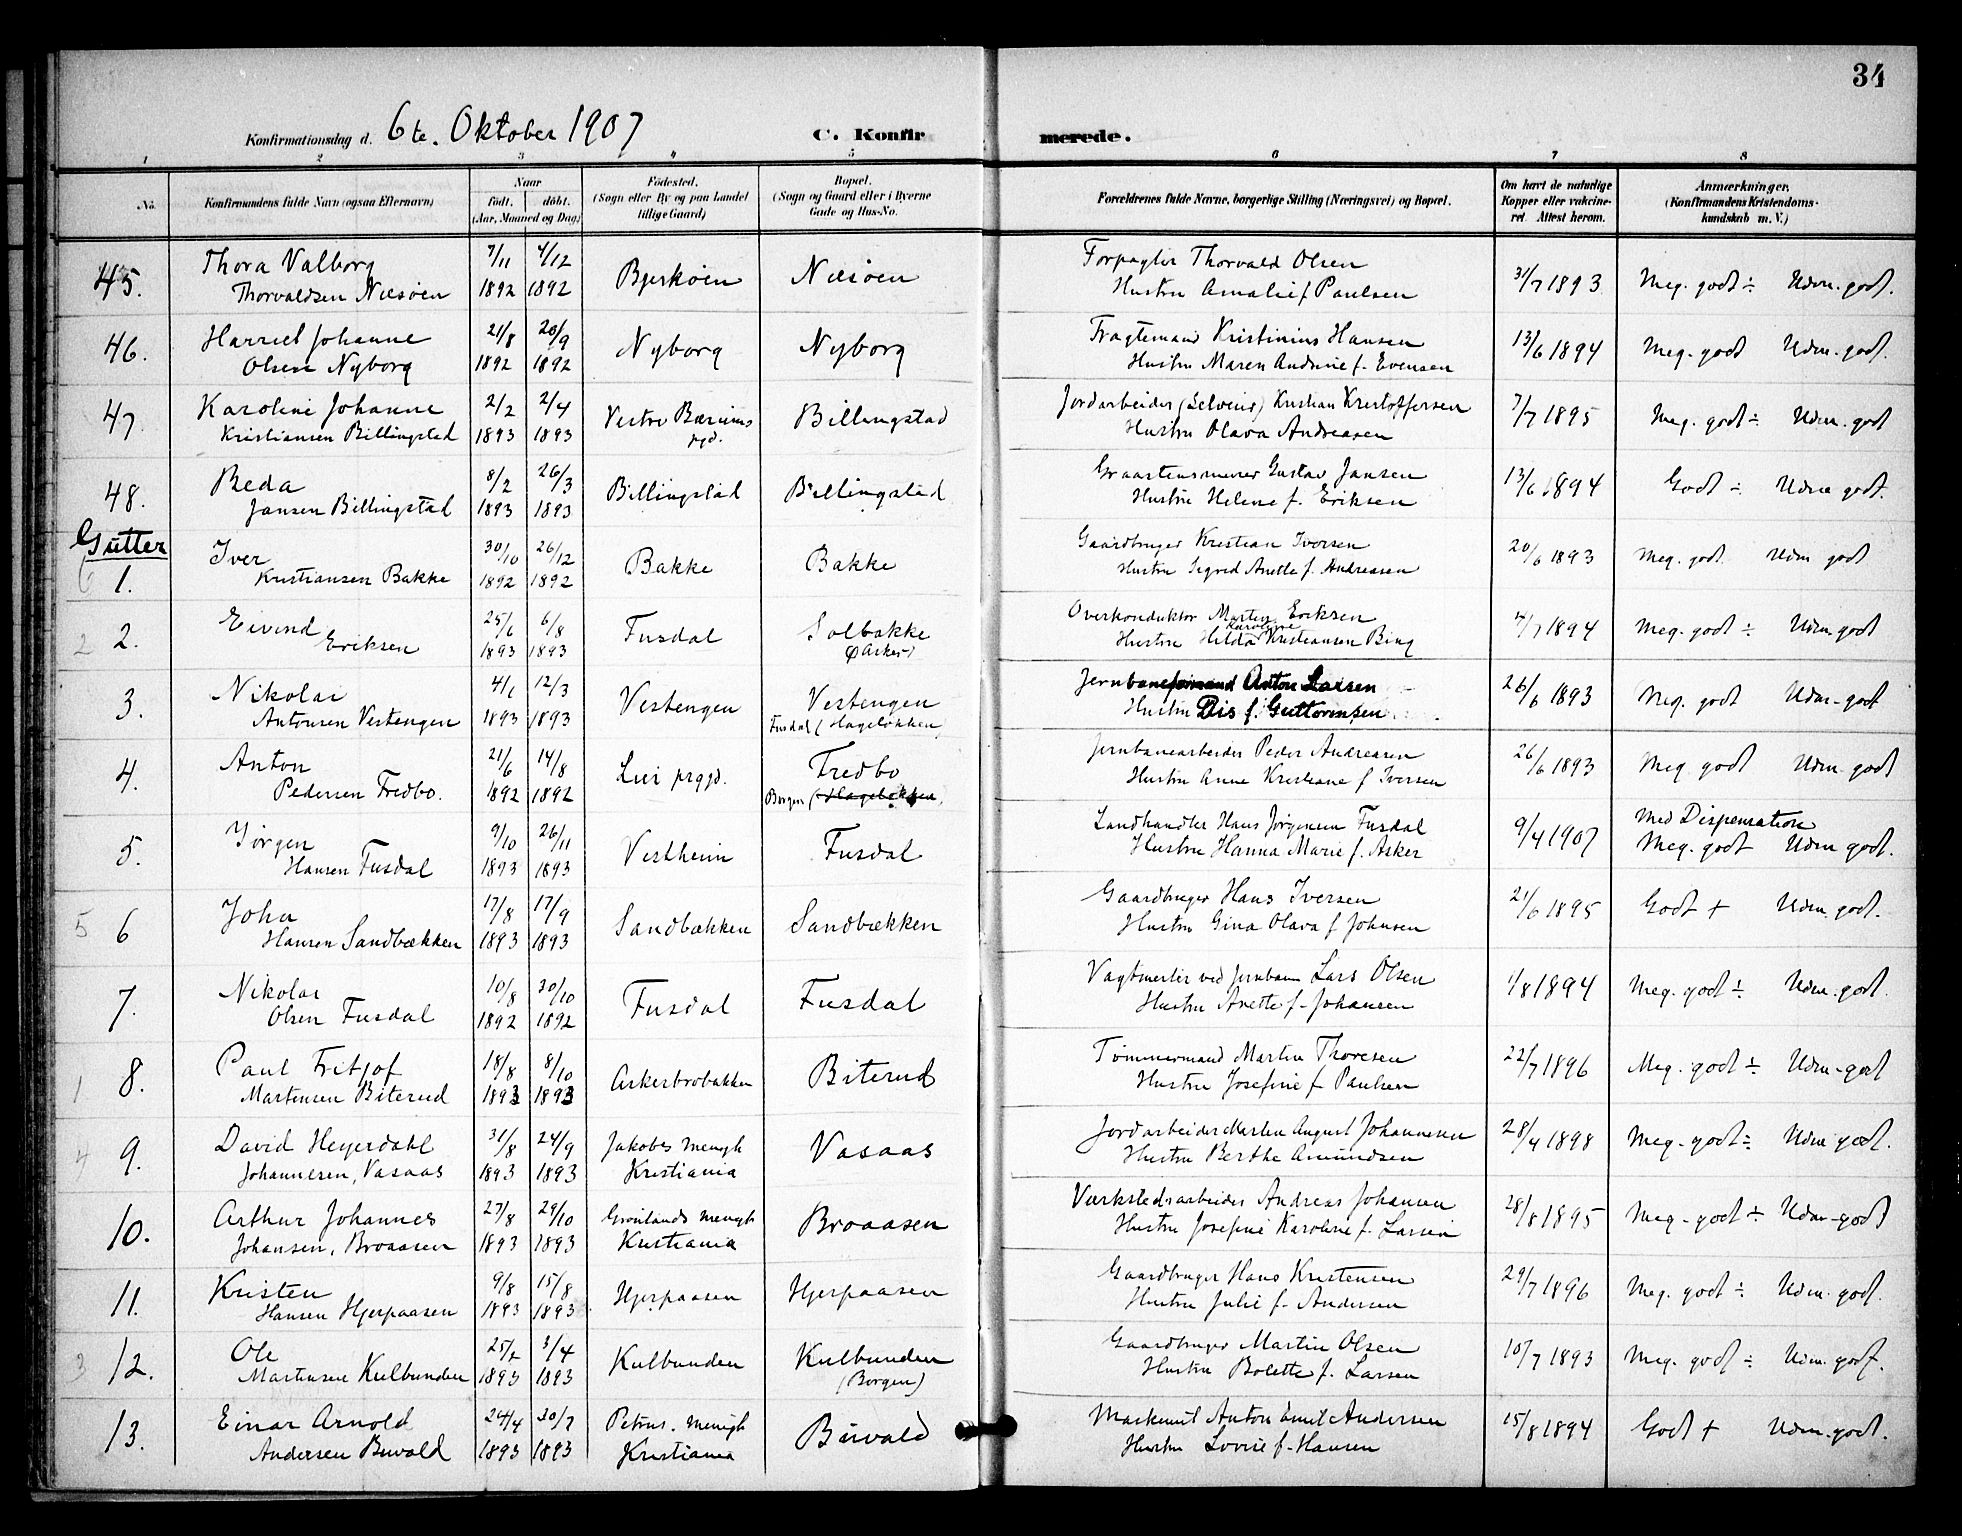 34
Konfirmationsdag d. 6te. Oktober 1907 C. Konfirmerede.
1 2 3 4 5 6 7 8
No. Konfirmandens fulde Navn (ogsaa Efternavn) Naar födt. döbt. (Aar, Maaned og Dag) Födested. (Sogn eller By og paa Landet tillige Gaard) Bopæl. (Sogn og Gaard eller i Byerne Gade og Hus-No. Forældrenes fulde Navne, borgerlige Stilling (Næringsvei) og Bopæl. Om havt de naturlige Kopper eller vakcineret. Attest herom. Anmærkninger. (Konfirmandens Kristendomskundskab m. V.)
45. Thora Valborg 7/11 4/12 Bjerköen Nesöen Forpagter Thorvald Olsen 31/7 1893 Meg. godt ÷ Udm. godt.
Thorvaldsen Nesöen 1892 1892 Hustru Amalie f Paulsen
46. Harriet Johanne 21/8 20/9 Nyborg Nyborg Fragtemand Kristinius Hansen 13/6 1894 Meg. godt Udm. godt.
Olsen Nyborg 1892 1892 Hustru Maren Andrine f. Evensen
47. Karoline Johanne 2/2 2/4 Vestre Bærums pgd. Billingstad Jordarbeider (Selveier) Kristian Kristoffersen 7/7 1895 Meg. godt ÷ Udm. godt
Kristiansen Billingstad 1893 1893 Hustru Olava Andreasen
48. Beda 8/2 26/3 Billingstad Billingstad Graastensmurer Gustav Jansen 13/6 1894 Godt ÷ Udm godt.
Jansen Billingstad 1893 1893 Hustru Helene f. Eriksen
Gutter
6 1. Iver 30/10 26/12 Bakke Bakke Gaardbruger Kristian Iversen 20/6 1893 Meg. godt Udm godt
Kristiansen Bakke 1892 1892 Hustru Sigrid Anette f. Andreasen
2 2. Eivind 25/6 6/8 Fusdal Solbakke Overkonduktör Martin Eriksen 4/7 1894 Meg. godt ÷ Udm. godt
Eriksen 1893 1893 (Asker) Hustru Hilda Karoline Kristiansen Bing
3. Nikolai 4/1 12/3 Vestengen Vestengen Jernbaneformand Anton Larsen 26/6 1893 Meg. godt Udm-godt
Antonsen Vestengen 1893 1893 Fusdal (Hagelökken) Hustru Dis f. Guttormsen
4. Anton 21/6 14/8 Lier prgjd. Fredbo Jernbanearbeider Peder Andreasen 26/6 1893 Meg godt Udm. godt
Pedersen Fredbo. 1892 1892 Borgen (Hagelökken) Hustru Anne Kristiane f Iversen
5. Jörgen 9/10 26/11 Vestheim Fusdal Landhandler Hans Jörgensen Fusdal 9/4 1907 Med Dispensation
Hansen Fusdal 1893 1893 Hustru Hanna Marie f. Asker Meg. godt Udm godt.
5 6 John 17/8 17/9 Sandbækken Sandbækken Gaardbruger Hans Iversen 21/6 1895 Godt + Udm. godt.
Hansen Sandbækken 1893 1893 Hustru Gina Olava f Johnsen
7. Nikolai 10/8 30/10 Fusdal Fusdal Vagtmester ved Jernban Lars Olsen 1/8 1894 Meg. godt ÷ Udm. godt.
Olsen Fusdal 1892 1892 Hustru Anette f. Johansen
1 8. Paul Fritjof 18/8 8/10 Askerbrobakken Biterud Tömmermand Martin Thoresen 22/7 1896 Meg. godt ÷ Udm-godt
Martensen Biterud 1893 1893 Hustru Josefine f Paulsen
4 9. David Heyerdahl 31/8 24/9 Jakobs menigh Vasaas Jordarbeider Martin August Johannesen 28/4 1898 Meg-godt ÷ Udm godt.
Johannesen, Vasaas 1893 1893 Kristiania Hustru Berthe Amundsen
10. Arthur Johannes 27/8 29/10 Grönlands menigh Broaasen Værkstedsarbeider Andreas Johansen 28/8 1895 Meg-godt ÷ Udm-godt
Johansen, Broaasen 1893 1893 Kristiania Hustru Josefine Karoline f. Larsen
11. Kristen 9/8 15/8 Hjerpaasen Hjerpaasen Gaardbruger Hans Kristensen 29/7 1896 Meg. godt ÷ Udm. godt.
Hansen Hjerpaasen 1893 1893 Hustru Julie f. Andersen
3 12. Ole 25/2 3/4 Kulbunden Kulbunden Gaardbruger Martin Olsen 10/7 1893 Meg. godt ÷ Udm. godt.
Martinsen Kulbunden 1893 1893 (Borgen) Hustru Bolette f. Larsen
13. Einar Arnold 24/4 30/7 Petrus. menigh Buvald Maskinist Anton Emil Andersen 15/8 1894 Godt + Udm. godt.
Andersen Buvald 1893 1893 Kristiania Hustru Lovise f. Hansen